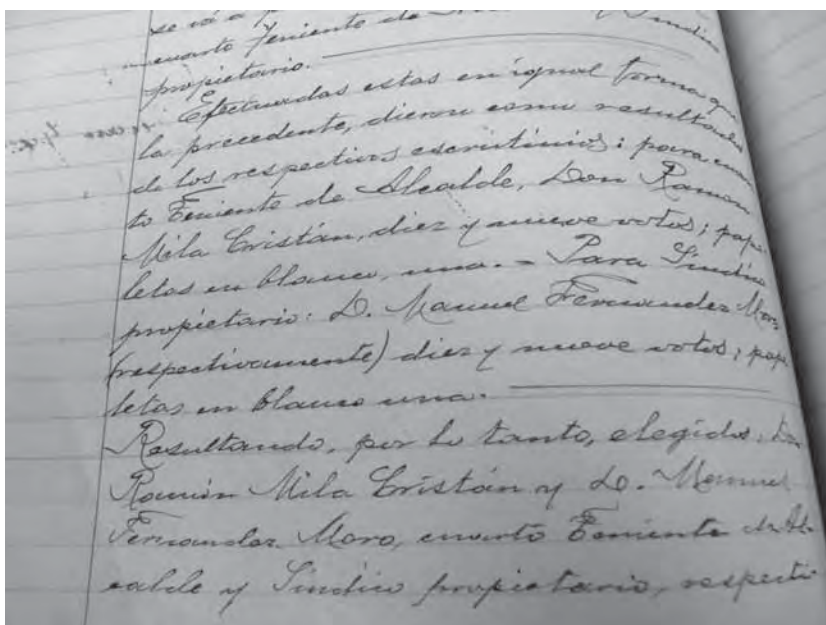 se vá a
cuarto Teniente de Síndico
propietario.
Efectuadas estas en igual forma que
la precedente, dieron como resultado
de los respectivos escrutinios: para cuar
to Teniente de Alcalde, Don Ramón
Mila Cristán, diez y nueve votos; pape
letas en blanco, una. - Para Síndico
propietario: D. Manuel Fernandez Moro
(respectivamente) diez y nueve votos; pape
letas en blanco una.
Resultando, por lo tanto, elegidos, Don
Ramón Mila Cristán y D. Manuel
Fernandez Moro, cuarto Teniente de Al-
calde y Síndico propietario, respecti